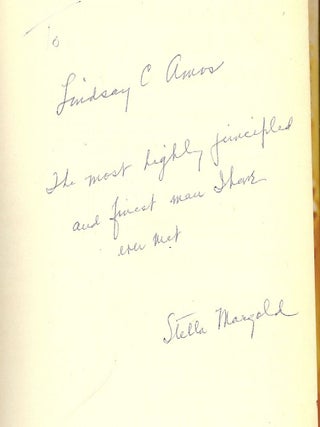 To
Lindsay C Amos
The most highly principled
and finest man I have
ever met
Stella Margold